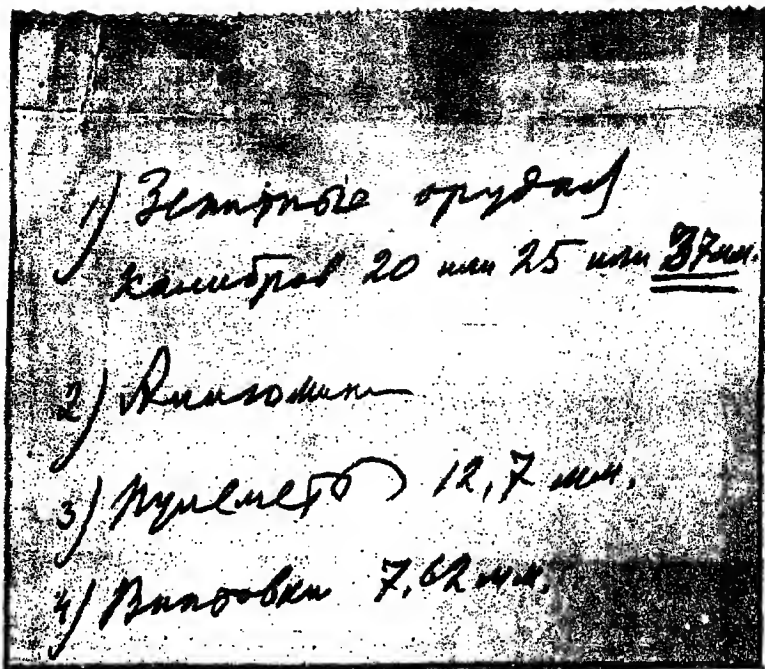 1) Зенитные орудия
калибров 20 или 25 или 37 мм.
2) Алюминий
3) Пулемёты 12,7 мм.
4) Винтовки 7,62 мм.